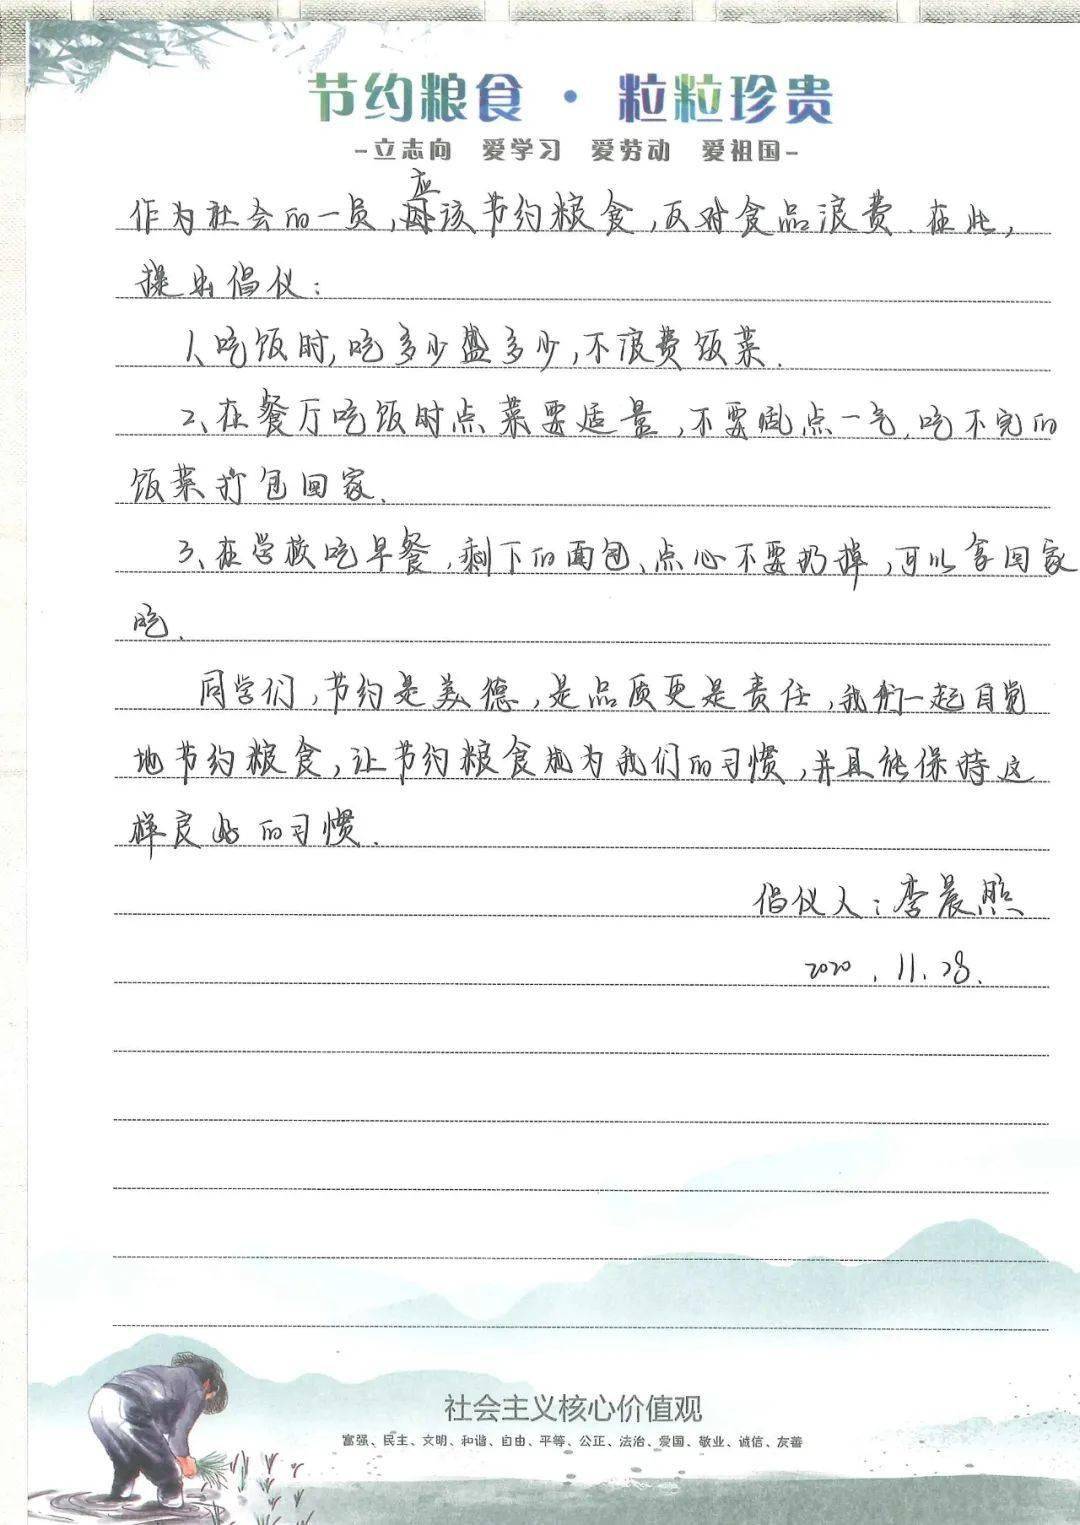 节约粮食·粒粒珍贵
-立志向 爱学习 爱劳动 爱祖国-
作为社会的一员,应该节约粮食,反对食品浪费.在此,
提出倡仪:
1、吃饭时,吃多少盛多少,不浪费饭菜.
2、在餐厅吃饭时点菜要适量,不要乱点一气,吃不完的
饭菜打包回家.
3、在学校吃早餐,剩下的面包、点心不要扔掉,可以拿回家
吃.
同学们,节约是美德,是品质更是责任,我们一起自觉
地节约粮食,让节约粮食成为我们的习惯,并且能保持这
样良好的习惯.
倡仪人:李晨熙
2020.11.28.
社会主义核心价值观
富强、民主、文明、和谐、自由、平等、公正、法治、爱国、敬业、诚信、友善